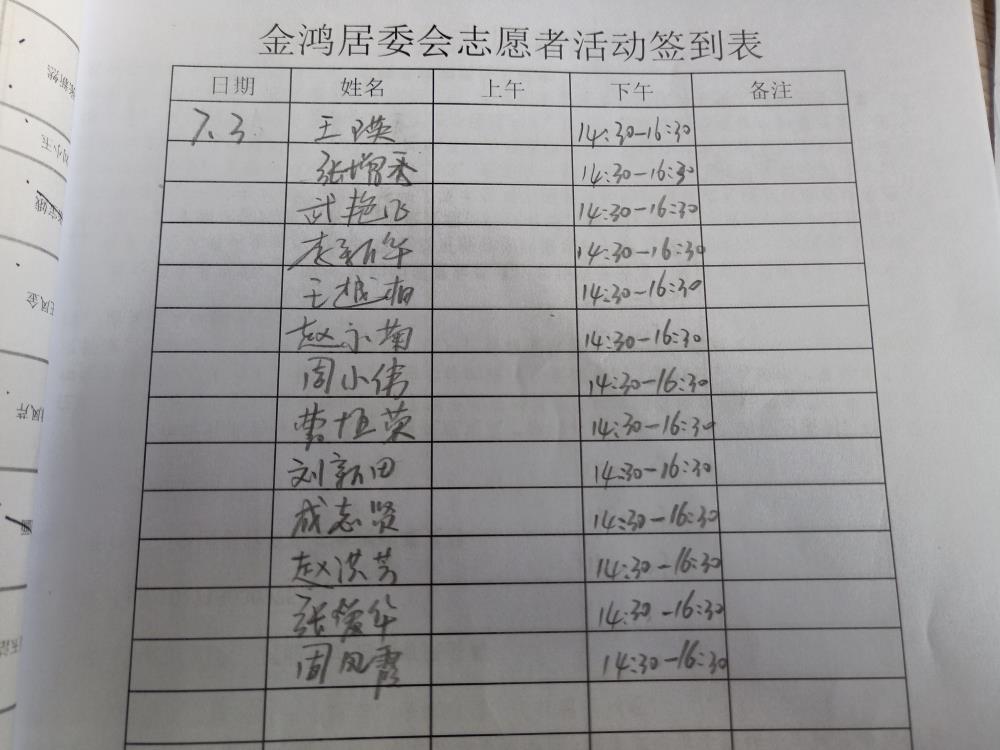 金鸿居委会志愿者活动签到表
日期 姓名 上午 下午 备注
7.3 王瑛 14:30-16:30
张增香 14:30-16:30
武艳飞 14:30-16:30
李新年 14:30-16:30
王越相 14:30-16:30
赵永菊 14:30-16:30
周小伟 14:30-16:30
曹恒英 14:30-16:30
刘新田 14:30-16:30
成志贤 14:30-16:30
赵洪芳 14:30-16:30
张爱华 14:30-16:30
周凤霞 14:30-16:30